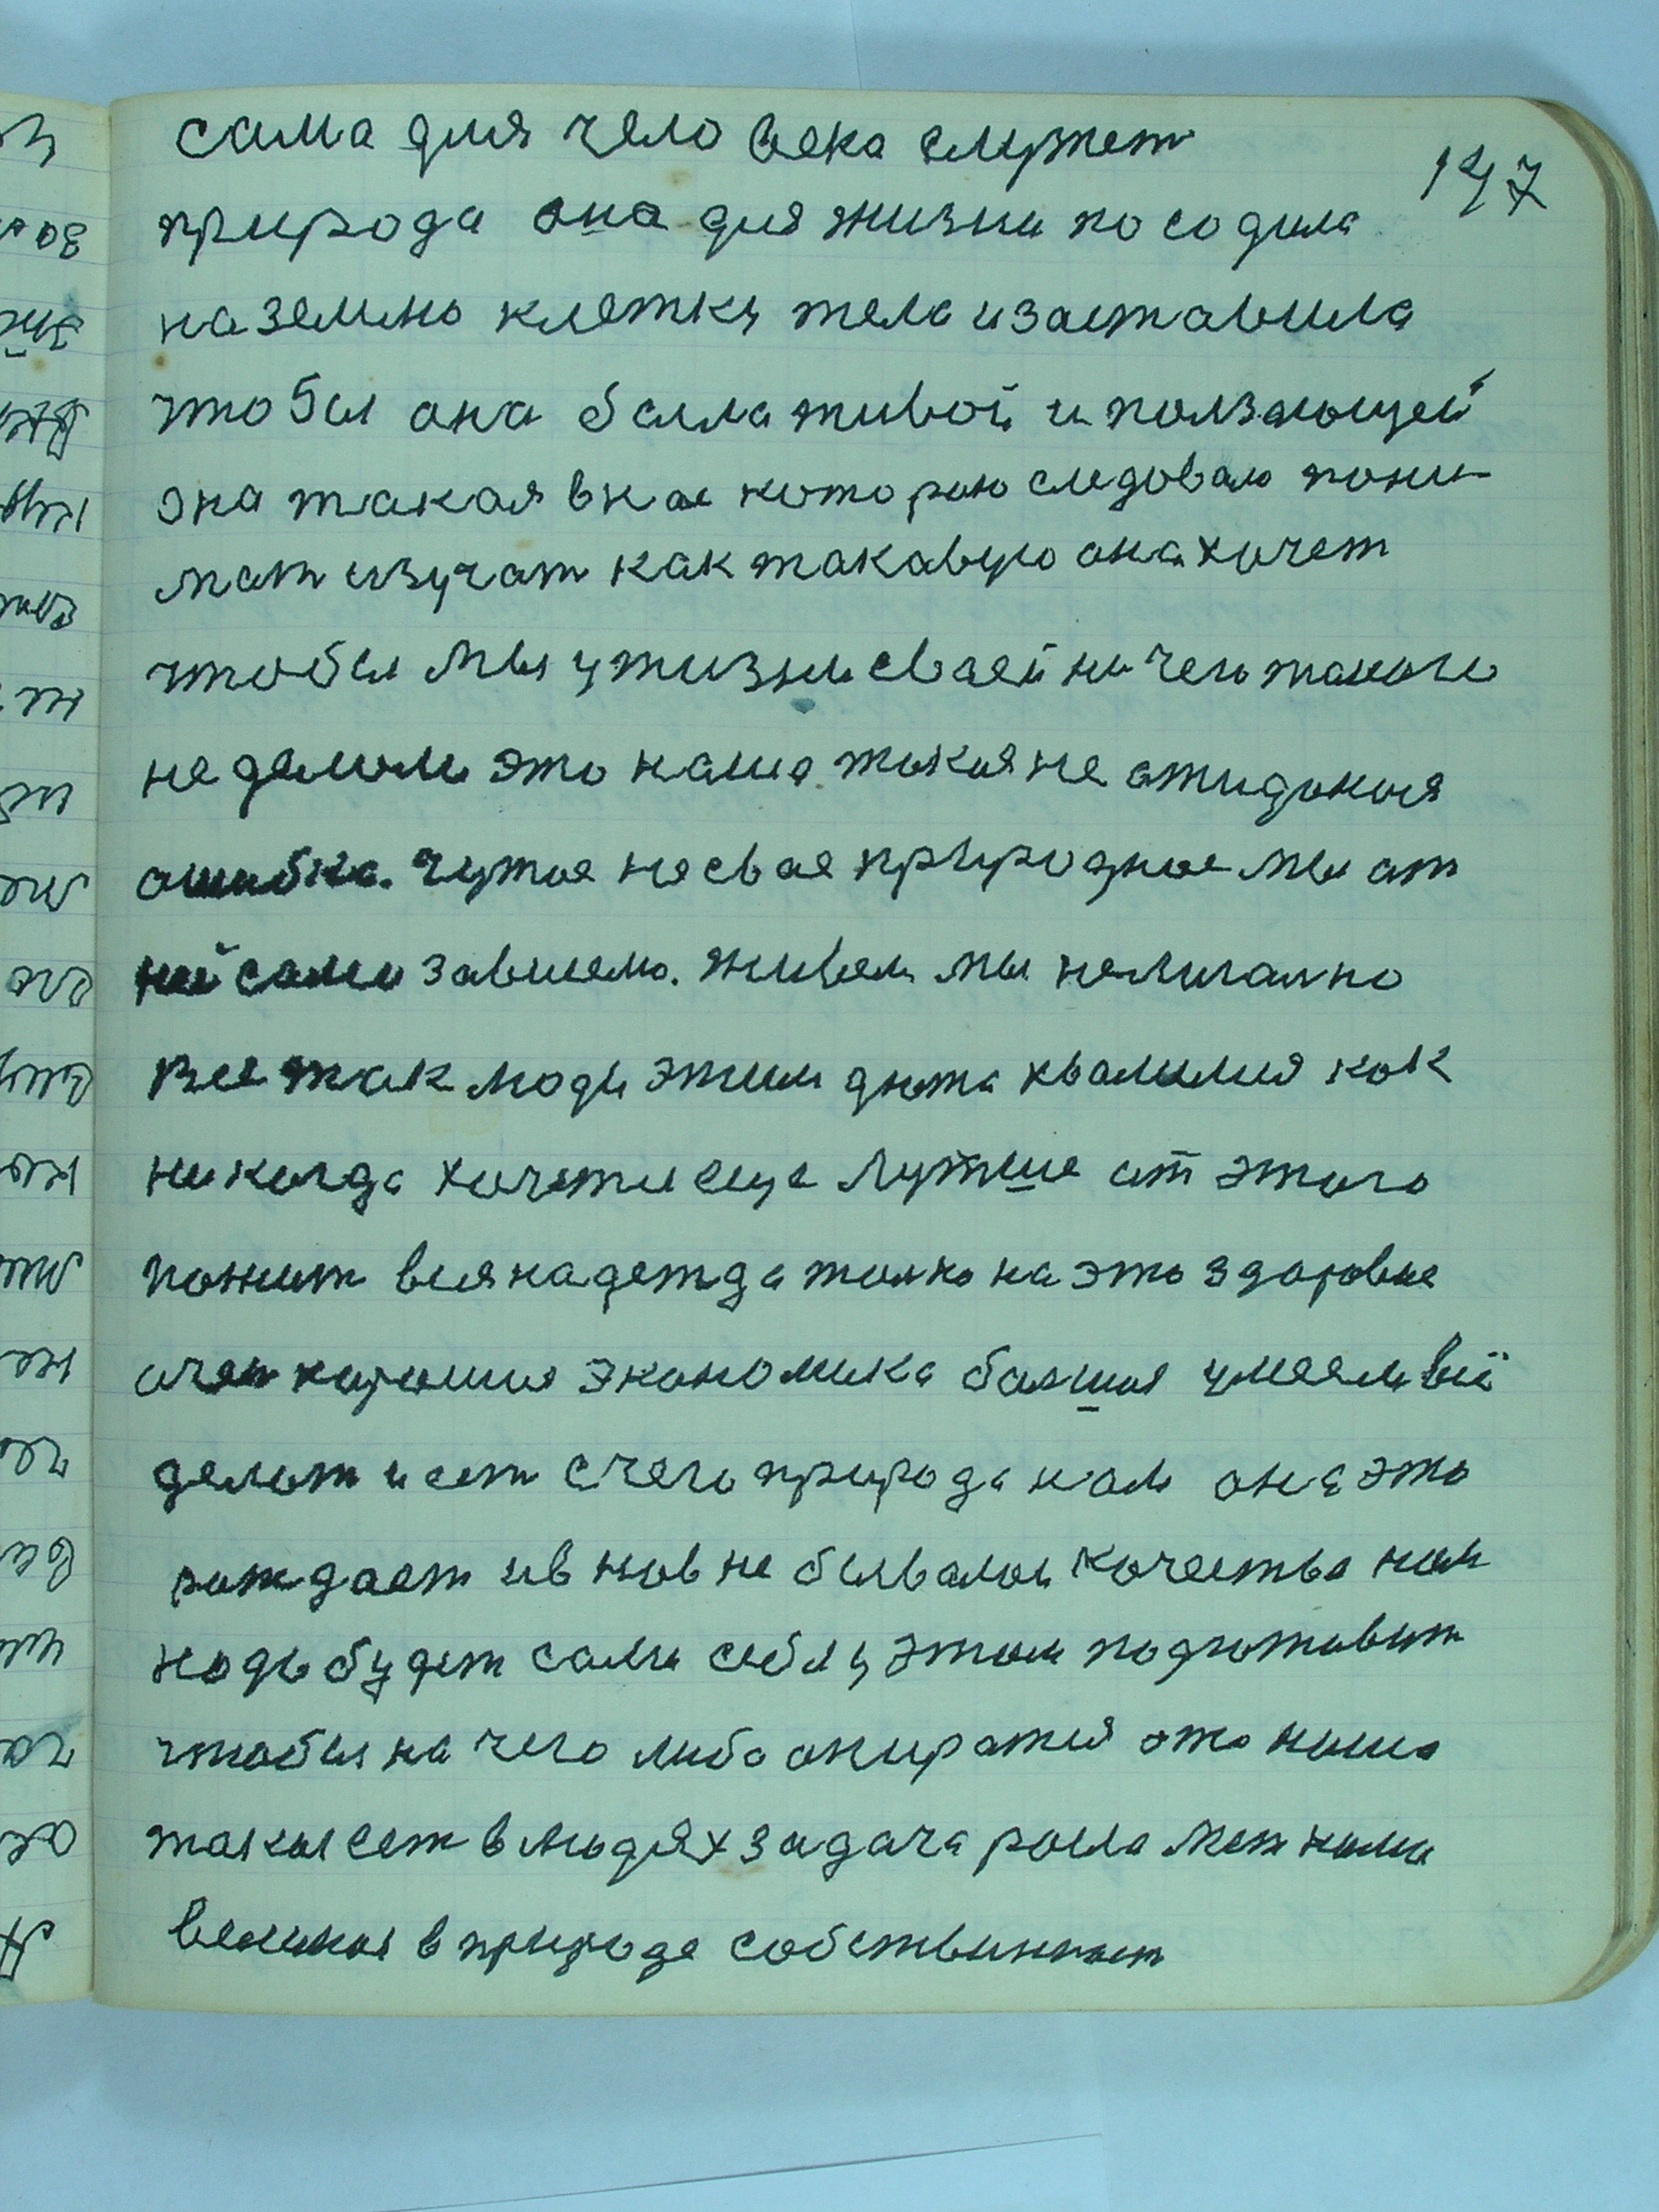 147
сама для чело века служет
природа она для жизни по содила
на землю клетку тела и заставила
что бы она была живой и ползающей
она такая вкае которою следовало пони-
мат изучат как такавую она хочет
чтобы мы у жизни сваей ни чего такого
не делали это наша такая не ажиданая
ошибка. Чужое не свае природное мы ат
ней сами зависемо. Живем мы нелигално
все так люди этим дюжа хвалился как
никогда хочется еще лутше ат этого
пожит вся надежда толко на это здоровие
очен хорошия экономика балшая умеем всё
делат и ест с чего природа нам она это
раждает ив нов не бывалои качества нам
надо будет сами себя у этом подготовит
чтобы на чего либо апиратся это наша
такая ест в людях задача росла меж нами
великая в природе собственност